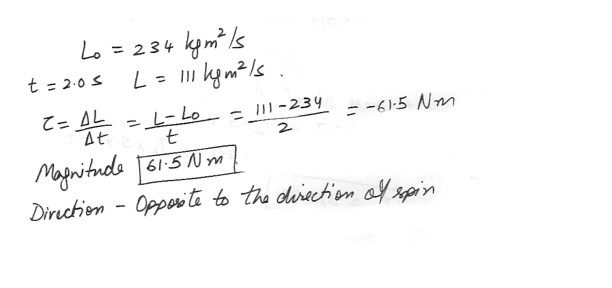 L₀ = 234 kgm²/s
t = 2.0 s L = 111 kgm²/s .
τ = ΔL/Δt = L-L₀/t = 111-234/2 = -61.5 Nm
Magnitude 61.5 Nm
Direction - Opposite to the direction of spin